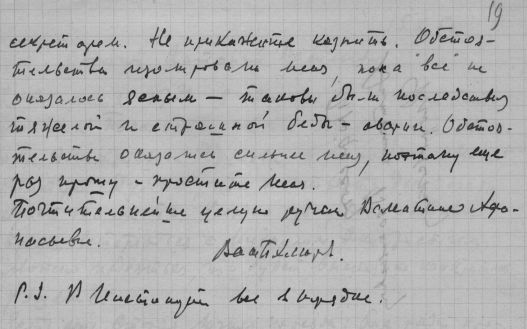 19
секретарем. Не прикажите казнить. Обстоя-
тельства изолировали меня, пока "все" не
оказалось ясным — таковы были последствия
тяжелой и страшной беды — аварии. Обстоя-
тельства оказались сильнее меня, поэтому еще
раз прошу — простите меня.
Почтительнейше целую ручки Афа-
насьевне.
Ваш
P.S. В Институте все в порядке.